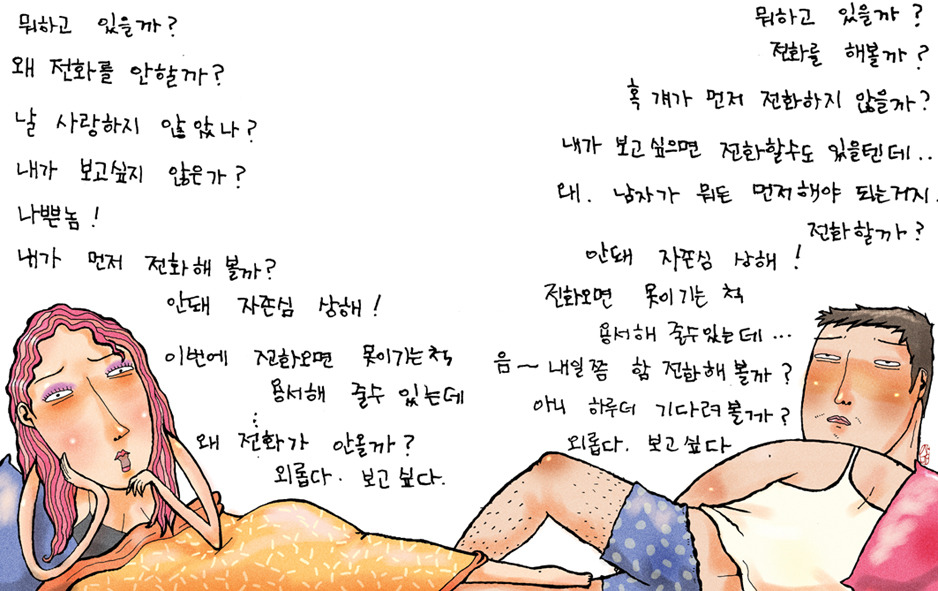 뭐하고 있을까?
왜 전화를 안할까?
날 사랑하지 않았나?
내가 보고싶지 않은가?
나쁜놈!
내가 먼저 전화해 볼까?
안돼 자존심 상해!
이번에 전화오면 못이기는척
용서해 줄수 있는데
....
왜 전화가 안올까?
외롭다. 보고 싶다.
뭐하고 있을까?
전화를 해볼까?
혹 걔가 먼저 전화하지 않을까?
내가 보고싶으면 전화할수도 있을텐데..
왜. 남자가 뭐든 먼저해야 되는거지.
전화할까?
안돼 자존심 상해!
전화오면 못이기는 척
용서해 줄수있는데...
음~ 내일쯤 함 전화해 볼까?
아니 하루더 기다려볼까?
외롭다. 보고싶다